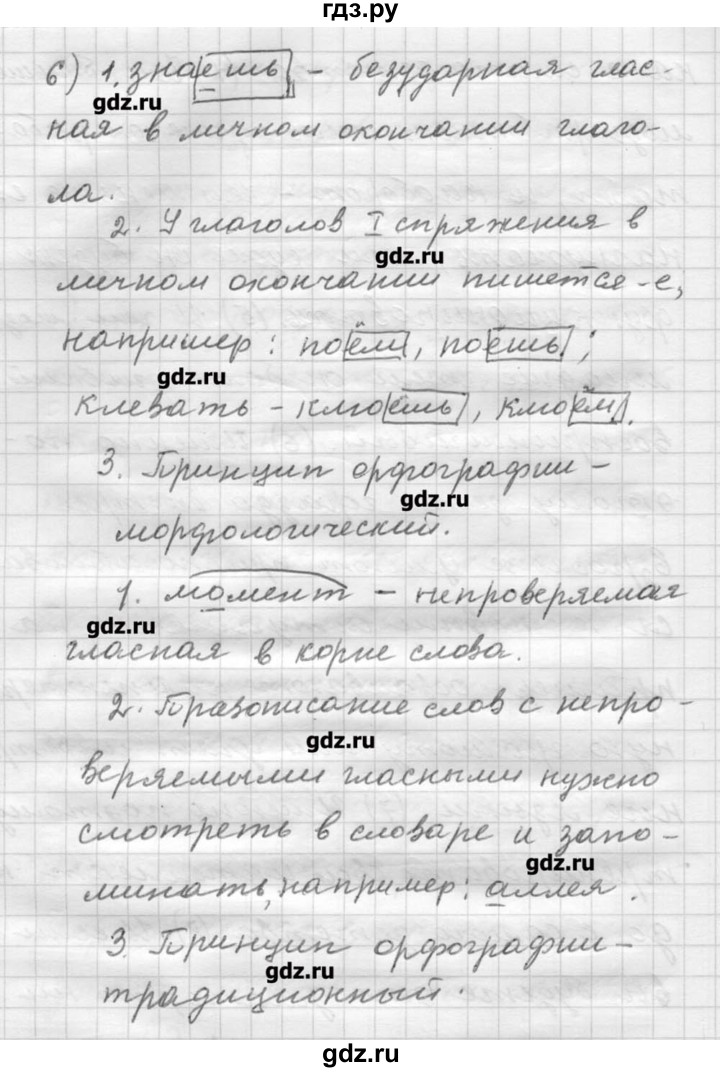 гдз.ру
б) 1. знаешь – безударная глас-
gdz.ru
ная в личном окончании глаго-
ла.
2. У глаголов I спряжения в
gdz.ru
личном окончании пишется -е,
например: поём, поёшь;
gdz.ru
клевать – клюёшь, клюём.
3. Принцип орфографии –
gdz.ru
морфологический.
1. момент – непроверяемая
gdz.ru
гласная в корне слова.
2. Правописание слов с непро-
gdz.ru
веряемыми гласными нужно
смотреть в словаре и запо-
gdz.ru
минать, например: аллея.
3. Принцип орфографии –
gdz.ru
традиционный.
gdz.ru